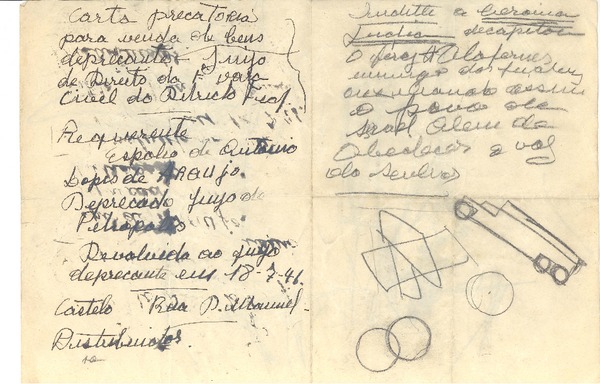 Carta precatoria
para venda de bens
deprecante Juizo
de Direito da 1ª vara
Civel do Districto Fed.
Requerente
Espolio de Antonio
Lopes de Araujo.
Deprecado Juizo de
Petropolis
Devolvida ao Juizo
deprecante em 18-7-41.
Castelo Rua D. Manuel
Distribuidor.
Judith a heroina
Judia decapitou
O Holofernes
inimigo dos judeus
assim
o povo de
Israel Alem de
Obedecer a voz
do senhor